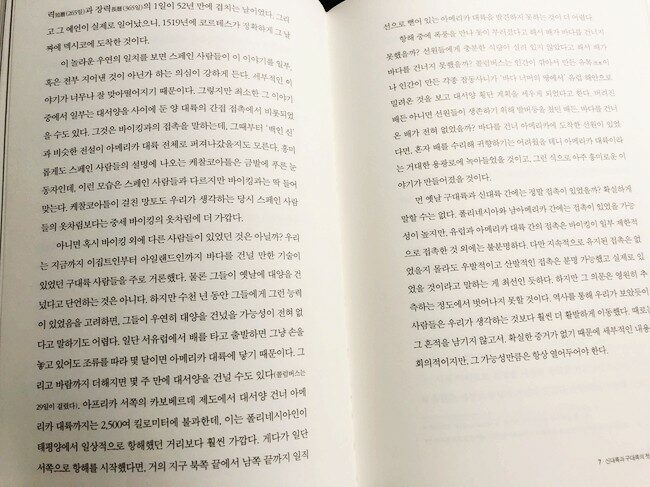 력短曆(265일)과 장력長曆(365일)의 1일이 52년 만에 겹치는 날이었다. 그리
고 그 예언이 실제로 일어났으니, 1519년에 코르테스가 정확하게 그 날
짜에 멕시코에 도착한 것이다.
이 놀라운 우연의 일치를 보면 스페인 사람들이 이 이야기를 일부,
혹은 전부 지어낸 것이 아닌가 하는 의심이 강하게 든다. 세부적인 이
야기가 너무나 잘 맞아떨어지기 때문이다. 그렇지만 최소한 그 이야기
중에서 일부는 대서양을 사이에 둔 양 대륙의 간접 접촉에서 비롯되었
을 수도 있다. 그것은 바이킹과의 접촉을 말하는데, 그때부터 '백인 신'
과 비슷한 전설이 아메리카 대륙 전체로 퍼져나갔을지도 모른다. 흥미
롭게도 스페인 사람들의 설명에 나오는 케찰코아틀은 금발에 푸른 눈
동자인데, 이런 모습은 스페인 사람들과 다르지만 바이킹과는 딱 들어
맞는다. 케찰코아틀이 걸친 망토도 우리가 생각하는 당시 스페인 사람
들의 옷차림보다는 중세 바이킹의 옷차림에 더 가깝다.
아니면 혹시 바이킹 외에 다른 사람들이 있었던 것은 아닐까? 우리
는 지금까지 이집트인부터 아일랜드인까지 바다를 건널 만한 기술이
있었던 구대륙 사람들을 주로 거론했다. 물론 그들이 옛날에 대양을 건
넜다고 단언하는 것은 아니다. 하지만 수천 년 동안 그들에게 그런 능력
이 있었음을 고려하면, 그들이 우연히 대양을 건넜을 가능성이 전혀 없
다고 말하기도 어렵다. 일단 서유럽에서 배를 타고 출발하면 그냥 손을
놓고 있어도 조류를 따라 몇 달이면 아메리카 대륙에 닿기 때문이다. 그
리고 바람까지 더해지면 몇 주 만에 대서양을 건널 수도 있다(콜럼버스는
29일이 걸렸다). 아프리카 서쪽의 카보베르데 제도에서 대서양 건너 아메
리카 대륙까지는 2,500여 킬로미터에 불과한데, 이는 폴리네시아인이
태평양에서 일상적으로 항해했던 거리보다 훨씬 가깝다. 게다가 일단
서쪽으로 항해를 시작했다면, 거의 지구 북쪽 끝에서 남쪽 끝까지 일직
선으로 뻗어 있는 아메리카 대륙을 발견하지 못하는 것이 더 어렵다.
항해 중에 폭풍을 만나 돛이 부러졌다고 해서 배가 바다를 건너지
못했을까? 선원들에게 충분한 식량이 실려 있지 않았다고 해서 배가
바다를 건너지 못했을까? 콜럼버스는 인간이 깎아서 만든 유목流木이
나 인간이 만든 각종 잡동사니가 '바다 너머의 땅에서' 유럽 해안으로
밀려온 것을 보고 대서양 횡단 계획을 세우게 되었다고 한다. 버려진
배든 아니면 선원들이 생존하기 위해 발버둥을 쳤던 배든, 바다를 건너
온 배가 전혀 없었을까? 바다를 건너 아메리카에 도착한 선원이 있었
다면, 혼자 배를 수리해 귀항하기는 어려웠을 테니 아메리카 대륙이라
는 거대한 용광로에 녹아들었을 것이고, 그런 식으로 아주 흥미로운 이
야기가 만들어졌을 것이다.
먼 옛날 구대륙과 신대륙 간에는 정말 접촉이 있었을까? 확실하게
말할 수는 없다. 폴리네시아와 남아메리카 간에는 접촉이 있었을 가능
성이 높지만, 유럽과 아메리카 대륙 간의 접촉은 바이킹이 일부 제한적
으로 접촉한 것 외에는 불분명하다. 다만 지속적으로 유지된 접촉은 없
었을지 몰라도 우발적이고 산발적인 접촉은 분명 가능했고 실제로 있
었을 것이라고 말하는 게 최선인 듯하다. 하지만 그 의문은 영원히 추
측하는 정도에서 벗어나지 못할 것이다. 역사를 통해 우리가 보았듯이
사람들은 우리가 생각하는 것보다 훨씬 더 활발하게 이동했다. 때로는
그 흔적을 남기지 않고서. 확실한 증거가 없기 때문에 세부적인 내용
회의적이지만, 그 가능성만큼은 항상 열어두어야 한다.
7 · 신대륙과 구대륙의 첫